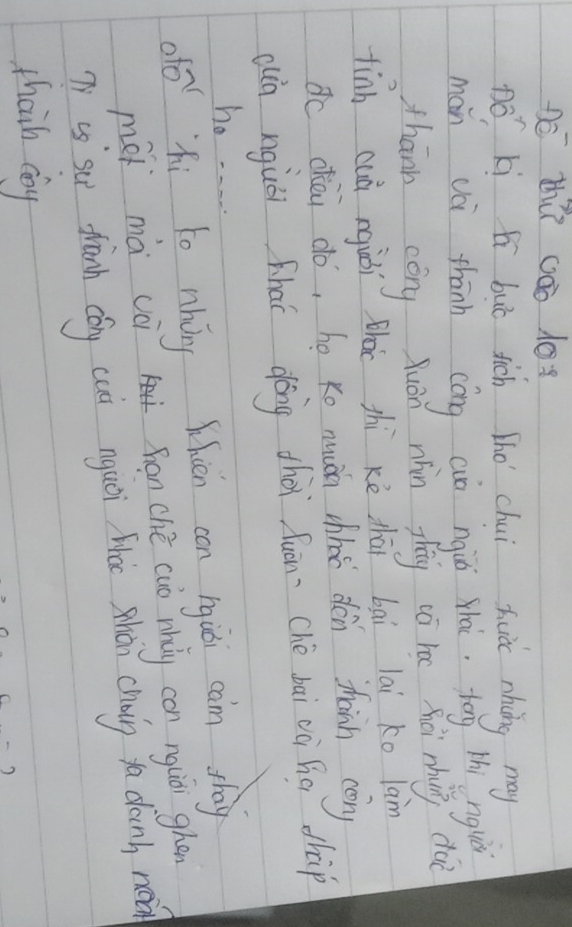 Đề thử vào 10:
Đố kị là bực tích khó chịu trước những may
mắn và thành công của người khác. trong khi người
thành công luôn nhìn thấy và học hỏi những đức
tính của người khác thì kẻ thất bại lại ko làm
đc điều đó, họ ko muốn nhắc đến thành công
của người khác đồng thời luôn chê bai và hạ thấp
họ.....
đố kị ko những khiến con người cảm thấy
mệt mỏi và hạn chế của những con người ghen
Tị vs sự thành công của người khác khiến chúng ta đánh mất
thành công